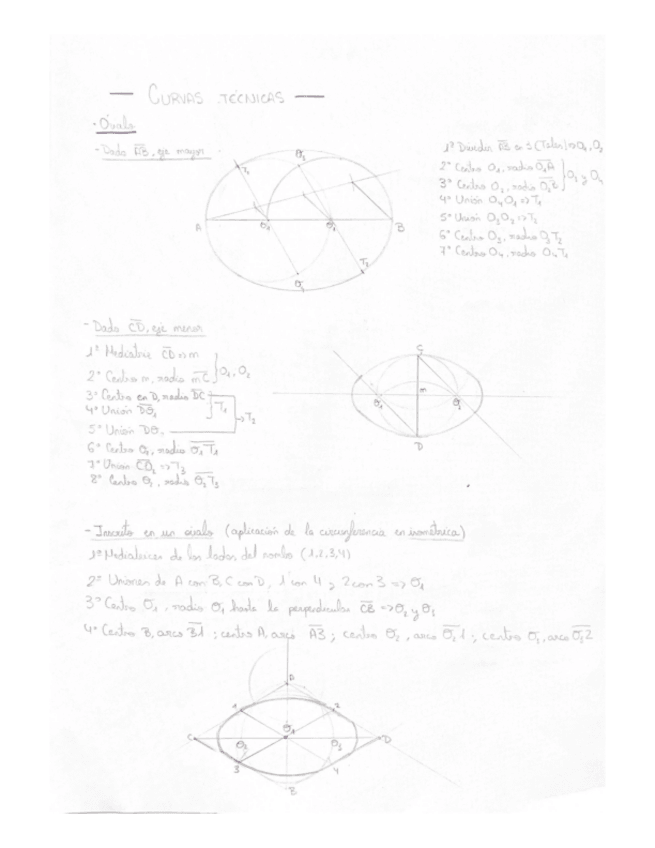 — CURVAS TÉCNICAS —
· Óvalo
- Dado AB, eje mayor
1º Dividir AB en 3 (Tales) => O1, O2
2º Centro O1, radio O1A
3º Centro O2, radio O2B
} O3 y O4
4º Unión O4O1 => T1
5º Unión O3O2 => T2
6º Centro O3, radio O3T2
7º Centro O4, radio O4T1
A
B
T1
T2
- Dado CD, eje menor
1º Mediatriz CD => m
2º Centro m, radio mC
} O1, O2
3º Centro en D, radio DC
4º Unión DO1
] T1
5º Unión DO2
=> T2
6º Centro O1, radio O1T1
7º Unión CO2 => T3
8º Centro O2, radio O2T3
C
O1
m
O2
D
- Inscrito en un óvalo (aplicación de la circunferencia en isométrica)
1º Mediatrices de los lados del rombo (1,2,3,4)
2º Uniones de A con B, C con D, 1 con 4 y 2 con 3 => O1
3º Centro O1, radio O1 hasta la perpendicular CB => O2 y O3
4º Centro B, arco B1 ; centro A, arco A3 ; centro O2, arco O21 ; centro O3, arco O32
A
1
2
C
O1
D
O2
O3
3
4
B